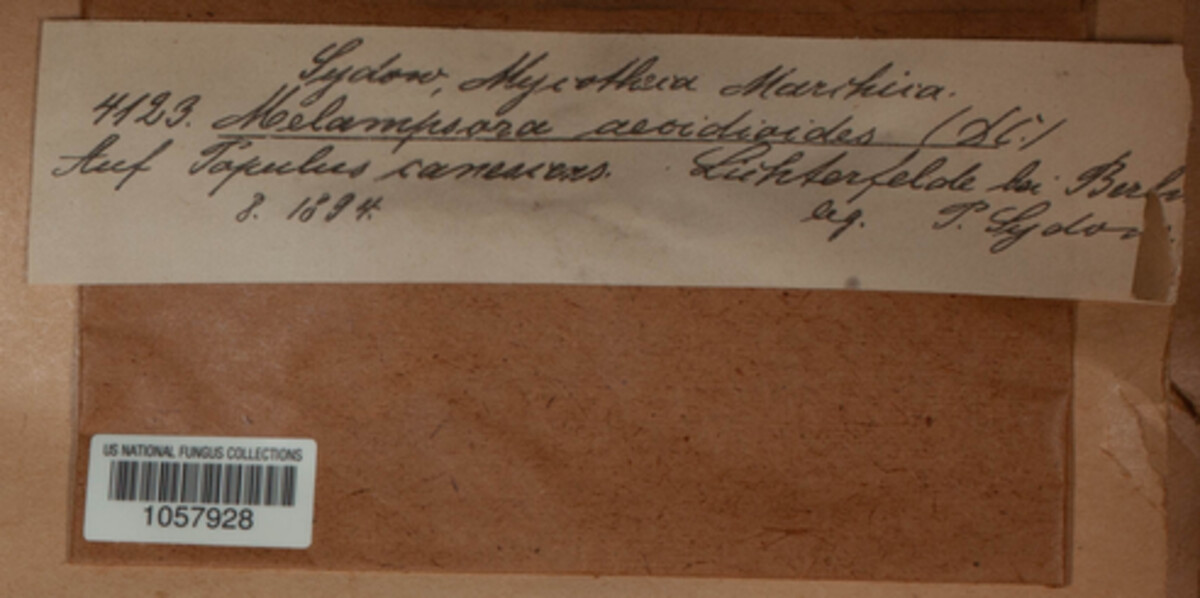 Sydow, Mycotheca Marchica.
4123. Melampsora aecidioides (DC.)
Auf Populus canescens. Lichterfelde bei Berlin
8. 1894. leg. P. Sydow.
US NATIONAL FUNGUS COLLECTIONS
1057928